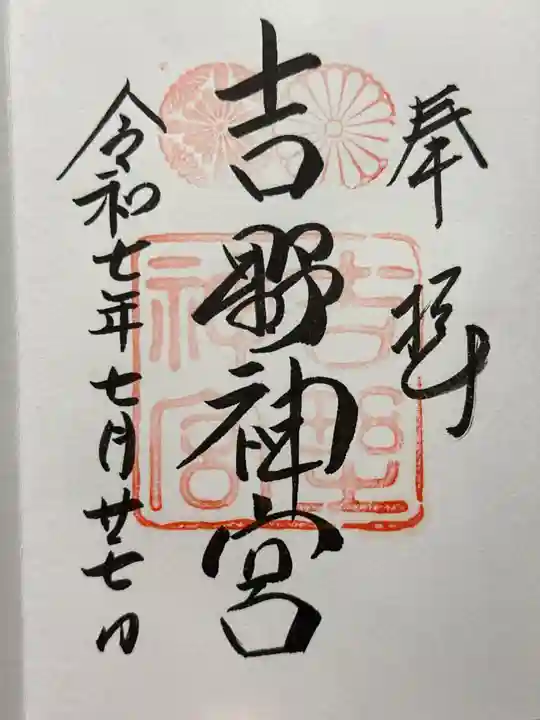 奉拝
吉野神宮
吉野
神宮
令和七年七月廿七日